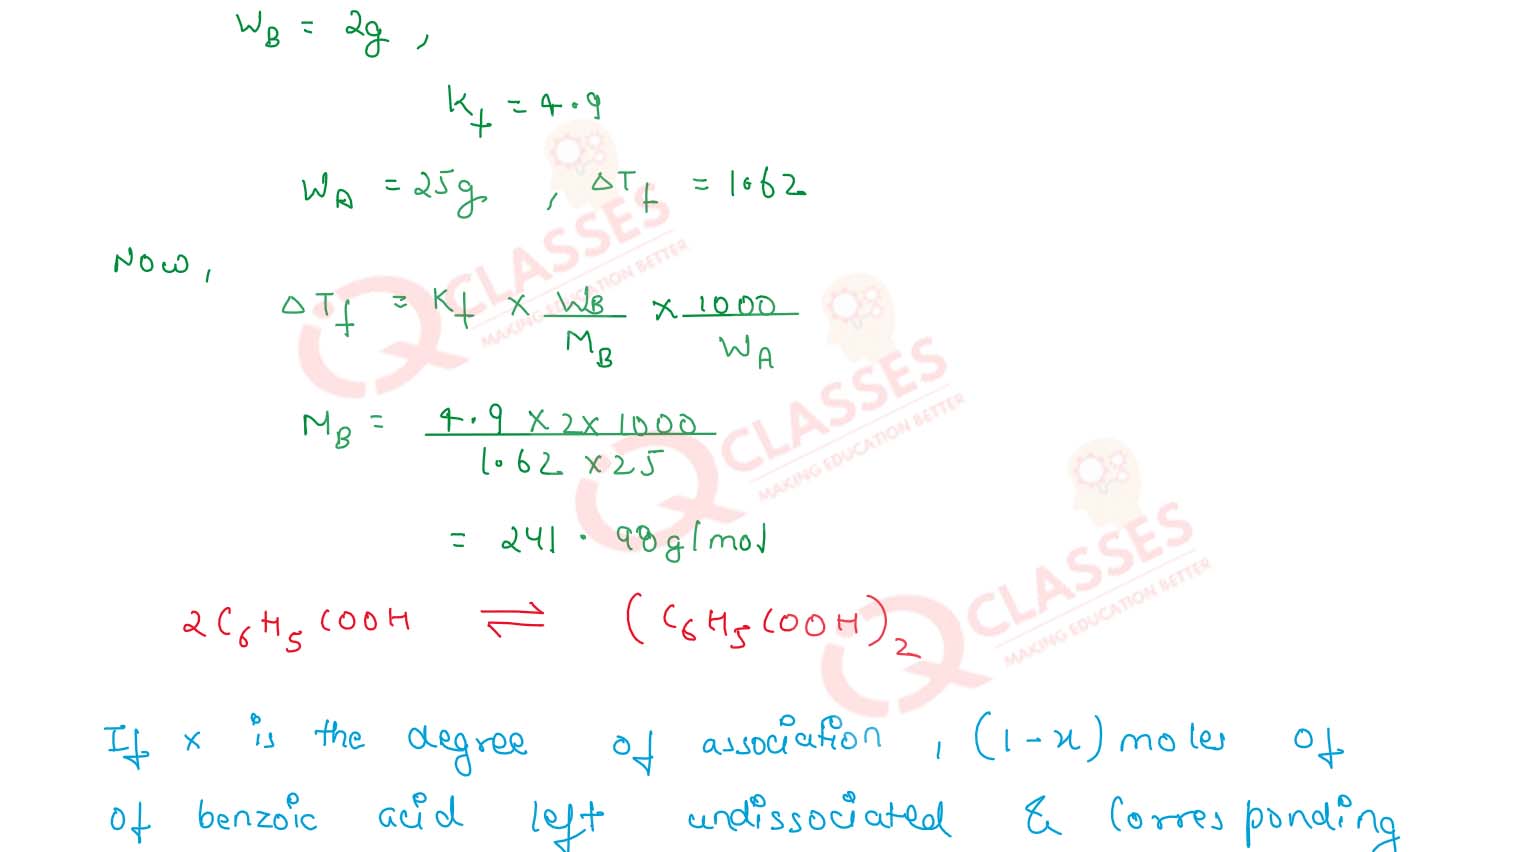 W_B = 2g ,
K_f = 4.9
W_A = 25g , ΔT_f = 1.62
Now,
ΔT_f = K_f × W_B/M_B × 1000/W_A
M_B = 4.9 × 2 × 1000 / 1.62 × 25
= 241.98 g/mol
2C₆H₅COOH ⇌ (C₆H₅COOH)₂
If x is the degree of association, (1-x) moles of
of benzoic acid left undissociated & corresponding
IQ CLASSES
MAKING EDUCATION BETTER
IQ CLASSES
MAKING EDUCATION BETTER
IQ CLASSES
MAKING EDUCATION BETTER